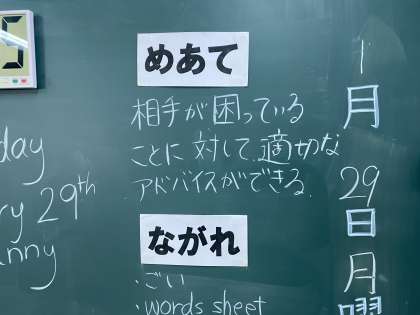 めあて
相手が困っている
ことに対して、適切な
アドバイスができる。
ながれ
・ごい
・words sheet
1月29日月曜
day
ry 29th
nny